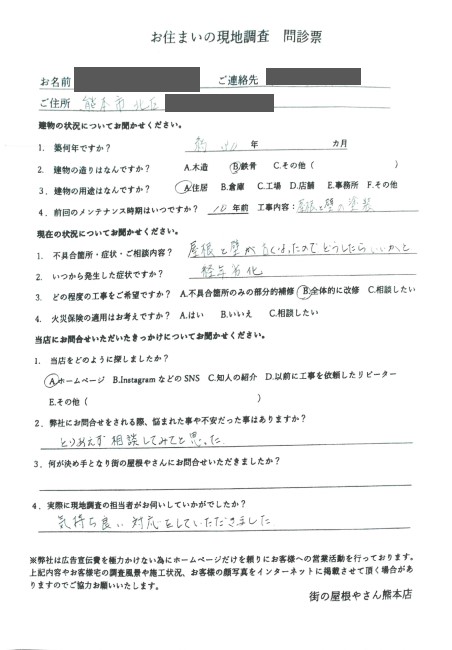 お住まいの現地調査 問診票
お名前 ご連絡先
ご住所 熊本市北区
建物の状況についてお聞かせください。
1. 築何年ですか? 約40 年 カ月
2. 建物の造りはなんですか? A.木造 B.鉄骨 C.その他( )
3. 建物の用途はなんですか? A.住居 B.倉庫 C.工場 D.店舗 E.事務所 F.その他
4. 前回のメンテナンス時期はいつですか? 10 年前 工事内容:屋根と壁の塗装
現在の状況についてお聞かせください。
1. 不具合箇所・症状・ご相談内容? 屋根と壁が古くなったのでどうしたらいいかと
2. いつから発生した症状ですか? 経年劣化
3. どの程度の工事をご希望ですか? A.不具合箇所のみの部分的補修 B.全体的に改修 C.相談したい
4. 火災保険の適用はお考えですか? A.はい B.いいえ C.相談したい
当店にお問合せいただいたきっかけについてお聞かせください。
1. 当店をどのように探しましたか?
A.ホームページ B.Instagram などの SNS C.知人の紹介 D.以前に工事を依頼したリピーター
E.その他( )
2. 弊社にお問合せをされる際、悩まれた事や不安だった事はありますか?
とりあえず相談してみてと思った
3. 何が決め手となり街の屋根やさんにお問合せいただきましたか?
4. 実際に現地調査の担当者がお伺いしていかがでしたか?
気持ち良い対応をしていただきました
※弊社は広告宣伝費を極力かけない為にホームページだけを頼りにお客様への営業活動を行っております。
上記内容やお客様宅の調査風景や施工状況、お客様の顔写真をインターネットに掲載させて頂く場合があ
りますのでご協力お願いいたします。
街の屋根やさん熊本店